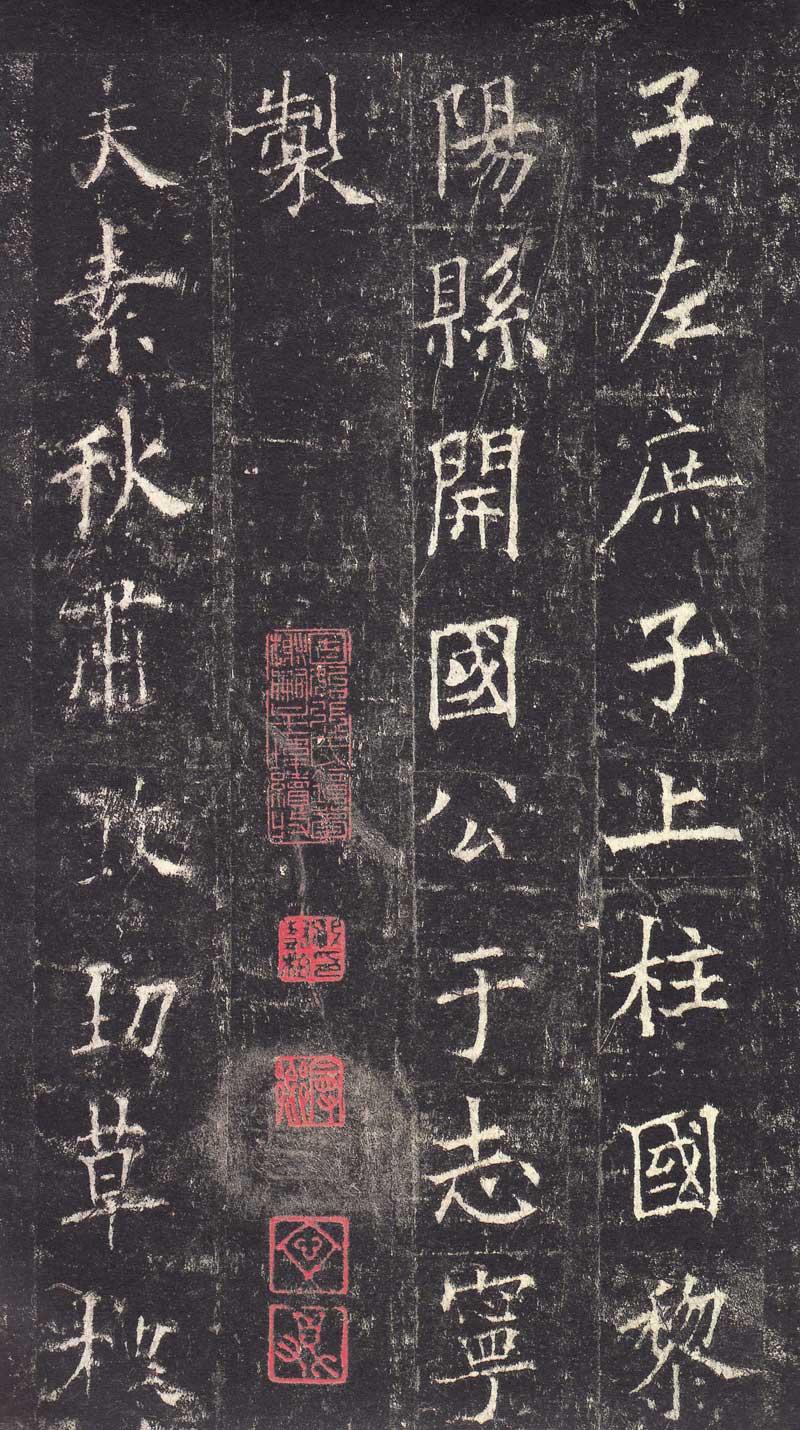 子左庶子上柱國黎
陽縣開國公于志寧
製
夫素秋肅勁草標